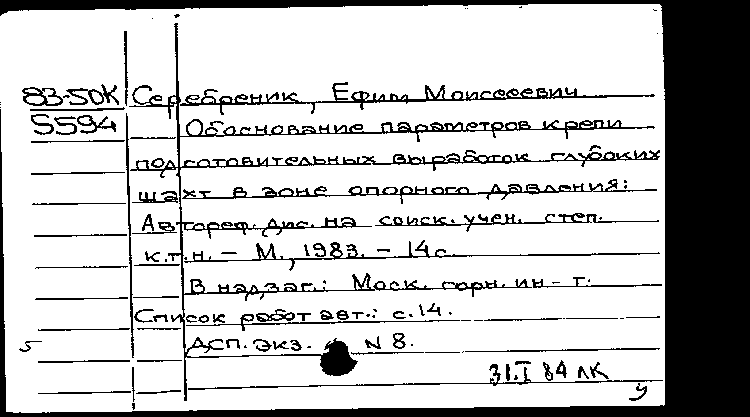 83-50К Серебреник, Ефим Моисеевич
5594 Обоснование параметров крепи
подготовительных выработок глубоких
шахт в зоне опорного давления:
Автореф. дис. на соиск. учен. степ.
к.т.н. – М., 1983. – 14с.
В надзаг.: Моск. горн. ин-т.
Список работ авт.: с.14.
5 ДСП. экз. N 8.
31.I 84 ЛК
У